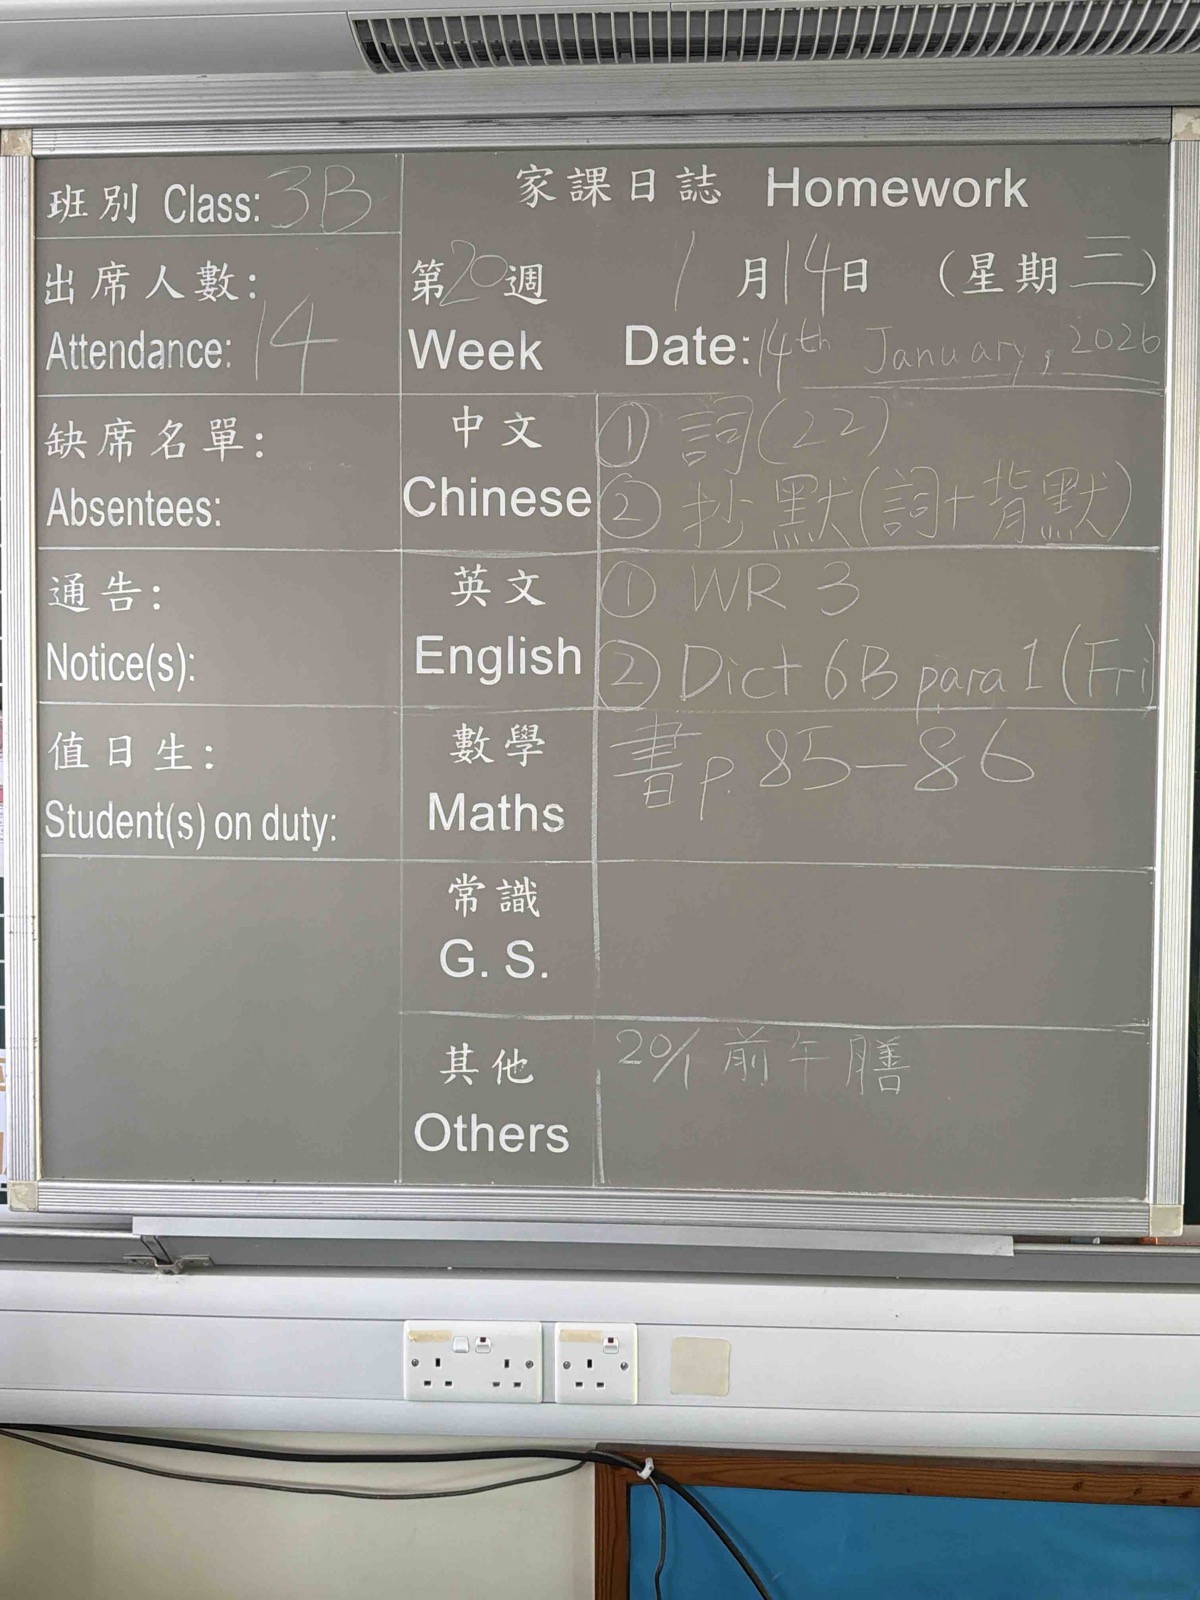 班別 Class: 3B
出席人數:
Attendance: 14
缺席名單:
Absentees:
通告:
Notice(s):
值日生:
Student(s) on duty:
家課日誌 Homework
第20週 1月14日 (星期三)
Week Date: 14th January, 2026
中文 ① 詞(22)
Chinese ② 抄默(詞+背默)
英文 ① WR 3
English ② Dict 6B para 1 (Fri)
數學 書p.85-86
Maths
常識
G. S.
其他 20/1 前午膳
Others